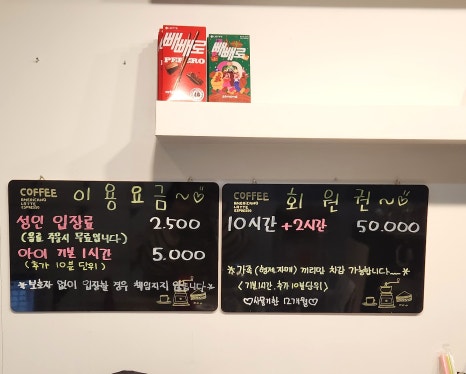 LOTTE
빼빼로
PEPERO
빼빼로
COFFEE
AMERICANO
LATTE
ESPRESSO
이용요금~♡
성인 입장료 2.500
(음료 주문시 무료입니다~)
아이 기본 1시간 5.000
(추가 10분 단위)
※보호자 없이 입장할 경우 책임지지 않습니다※
COFFEE
AMERICANO
LATTE
ESPRESSO
회원권~♡
10시간 +2시간 50.000
※가족(형제,자매)끼리만 차감 가능합니다~※
(기본1시간, 추가 10분단위)
♡사용기한 12개월♡